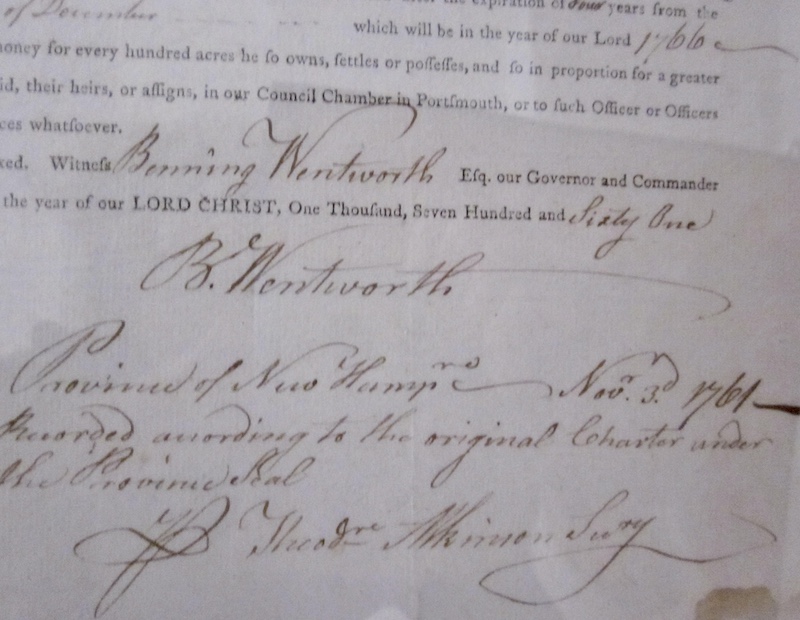 of December the expiration of four years from the
which will be in the year of our Lord 1766
money for every hundred acres he ſo owns, ſettles or poſſeſſes, and ſo in proportion for a greater
id, their heirs, or aſſigns, in our Council Chamber in Portſmouth, or to ſuch Officer or Officers
ces whatſoever.
xed. Witneſs Benning Wentworth Eſq. our Governor and Commander
the year of our LORD CHRIST, One Thouſand, Seven Hundred and Sixty One
B. Wentworth
Province of New Hampre Novr. 3d 1761
Recorded according to the original Charter under
the Province Seal
P Theodre Atkinson Secry